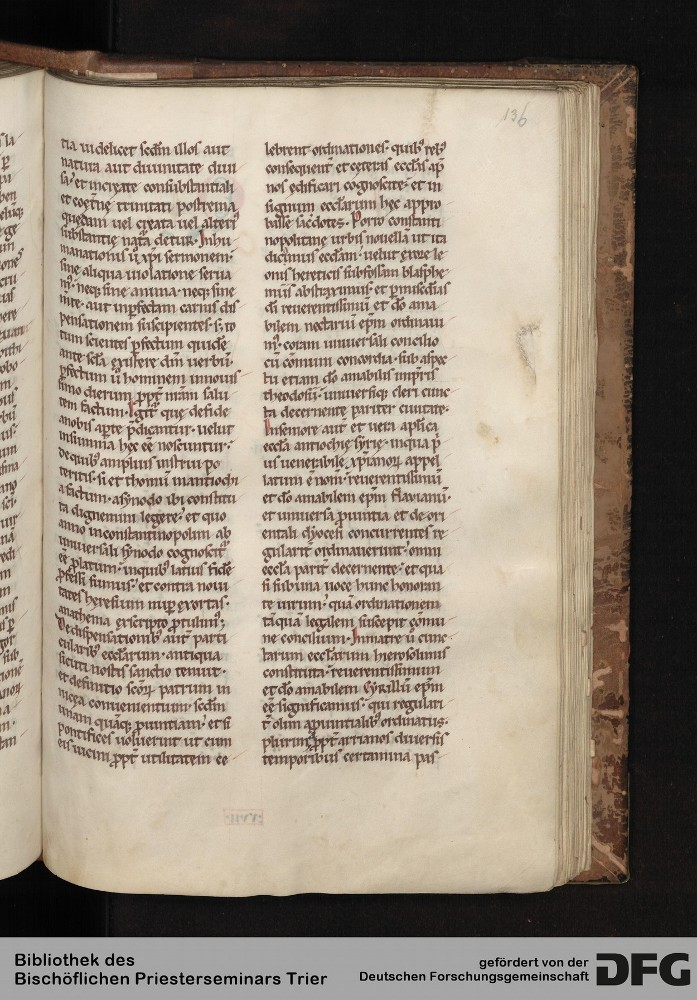 136
tia videlicet scdm illos aut
natura aut divinitate divi
sa· et increate consubstantiali
et coetne trinitati postrema
quedam vel creata vel alteri⁹
substantie nata detur. Inhu
manationis ū xpi sermonem·
sine aliqua violatione serva
m⁹· neq; sine anima· neq; sine
mte· aut inperfectam carnis dis
pensationem suscipientes· s; to
tum scientes pfectum quidē
ante scla existere dm verbū·
pfectum ū hominem in novis
simo dierum ppt nram salu
tem factum. Igit que de fide
a nobis apte pdicantur· velut
in summa hec eē noscuntur·
de quib⁹ amplius instrui po
teritis· si et thomū in antiochi
a factum· a synodo ibi constitu
ta dignemini legere· et quo
anno in constantinopolim ab
universali synodo cognoscit
eē platum· in quib⁹ latius fidē
pfessi sumus· et contra novi
tates heresium nup exortas·
anathema ex scripto ptulim⁹;
De dispensationib⁹ aut parti
cularib⁹ ecclarum· antiqua
sicuti nostis sanctio tenuit·
et definitio scōrum patrum in
nicea convenientium· scdm
unam quamq; pvintiam· et si
pontifices voluerint ut cum
eis vicini ppt utilitatem ce
lebrent ordinationes· quib⁹ reb⁹
consequent et ceteras ecclas ap
nos edificari cognoscite· et in
signum ecclarum hec appro
basse sacdotes. Porro constanti
nopolitane urbis novella ut ita
dicimus ecclam· velut ex ore le
onis hereticis subfossam blasphe
miis abstraximus· et p misedias
di reverentissimū et do ama
bilem nectariū epm ordinavi
m⁹· coram universali concilio
cū comuni concordia· sub aspec
tu etiam do amabilis impris
theodosii· universiq; cleri cunc
ta decernente pariter civitate·
In semore aut et vera aplica
eccla antiochie syrie· in qua p
us venerabile xpianorum appel
latum ē nom· reverentissimū
et do amabilem epm flavianū·
et universa pvintia et de ori
entali diocesi concurrentes re
gularit ordinaverunt· omni
eccla parit decernente· et qua
si sub una voce hunc honoran
te virum· qua ordinationem
tāqua legalem suscepit comu
ne concilium. In matre ū cunc
tarum ecclarum hierosolimis
constituta· reverentissimum
et do amabilem Cyrillū epm
eē significamus· qui regulari
t olim a pvintialib⁹ ordinatus·
plurim⁹ ppt arrianos diversis
temporibus certamina pas
·XVII·
Bibliothek des
Bischöflichen Priesterseminars Trier
gefördert von der
Deutschen Forschungsgemeinschaft
DFG